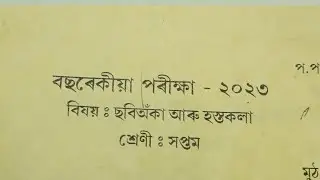 প.প
বছৰেকীয়া পৰীক্ষা - ২০২৩
বিষয় : ছবিঅঁকা আৰু হস্তকলা
শ্ৰেণী : সপ্তম